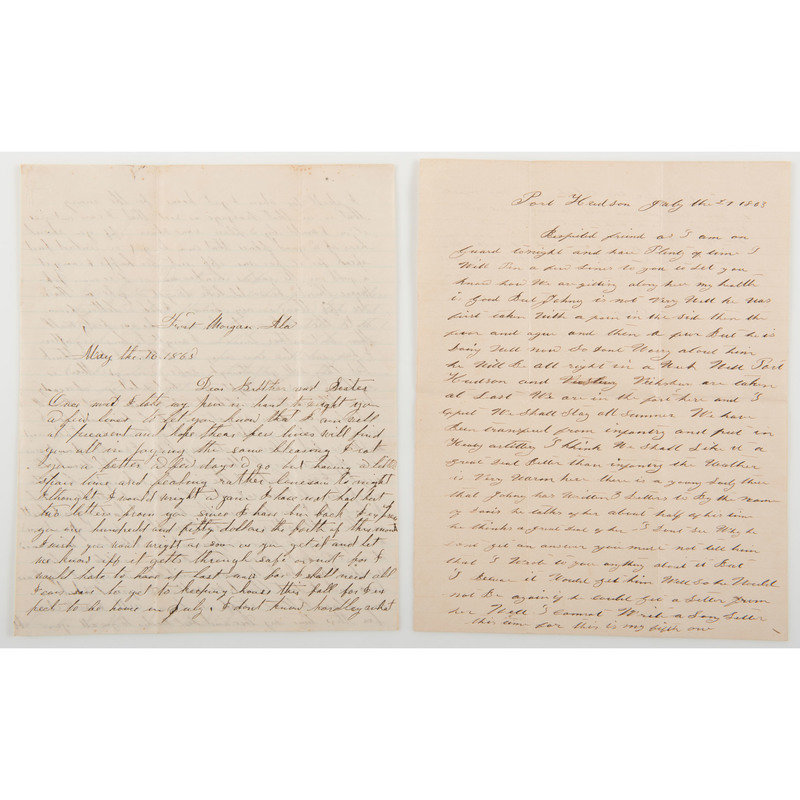 Fort Morgan Ala
May the. 10 1865
Dear Brother and Sister
Once more I take my pen in hand to wright you
a few lines to let you know that I am well
at preasent and hope theas few lines will find
you all in joying the same blessing I rote
you a letter a few days a go but having a little
spair time and fealing rather lonesom to night
I thought I would wright a gain I have not had but
two letters from you since I have bin back
you one hundreld and fifty dollars the forth of this month
I wish you would wright as soon as you get it and let
me know iff it gets through safe or not for I
would hate to have it lost and for I shall need all
I can save to get to keeping house this fall for I ex
pect to be home in July. I dont know hardley what
Port Hudson July the 21 1863
Respected friend as I am on
Guard tonight and have Plenty of time I
Will Pen a few lines to you to let you
know how We ar getting along her my health
is Good But Johny is not Very Well he was
first taken With a pain in the Sid then the
fever and ague and then a fever But he is
Doing Well now So dont Worry about him
he Will Be all right in a Week Well Port
Hudson and Vicksburg are taken
at Last We are in the fort here and I
Expect We Shall Stay all Summer We have
Been transferd from infantry and put in
Heavy artillery I think We Shall Like it a
great deal Better than infantry the Weather
is Very Warm her there is a young Lady there
that Johny has Written 3 letters to By the name
of he talks of her about half of his time
he thinks a great deal of her I dont See Why he
dont get an answer you must not tell him
that I Wrote to you anything about it But
I Beleve it Would get him Well So he Would
not Be again if he could get a Letter from
her Well I cannot Write a Long Letter
this time for this is my Sixth one